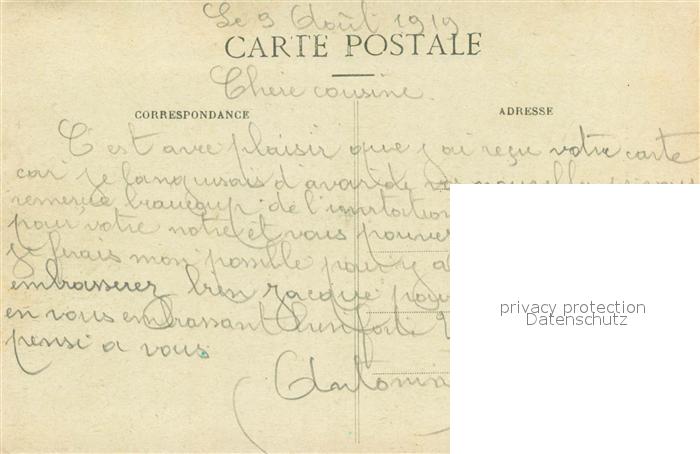 Le 9 Août 1919
CARTE POSTALE
Chere cousine
CORRESPONDANCE
ADRESSE
C'est avec plaisir que j'ai reçu votre carte
car je languisais d'avoir de
remercie beaucoup de l'invitation
pour votre notre et vous pouvez
je ferais mon possible pour y a
embrasserez bien Jacque pour
en vous embrassant bien fort
pensé a vous
Antonin
privacy protection
Datenschutz